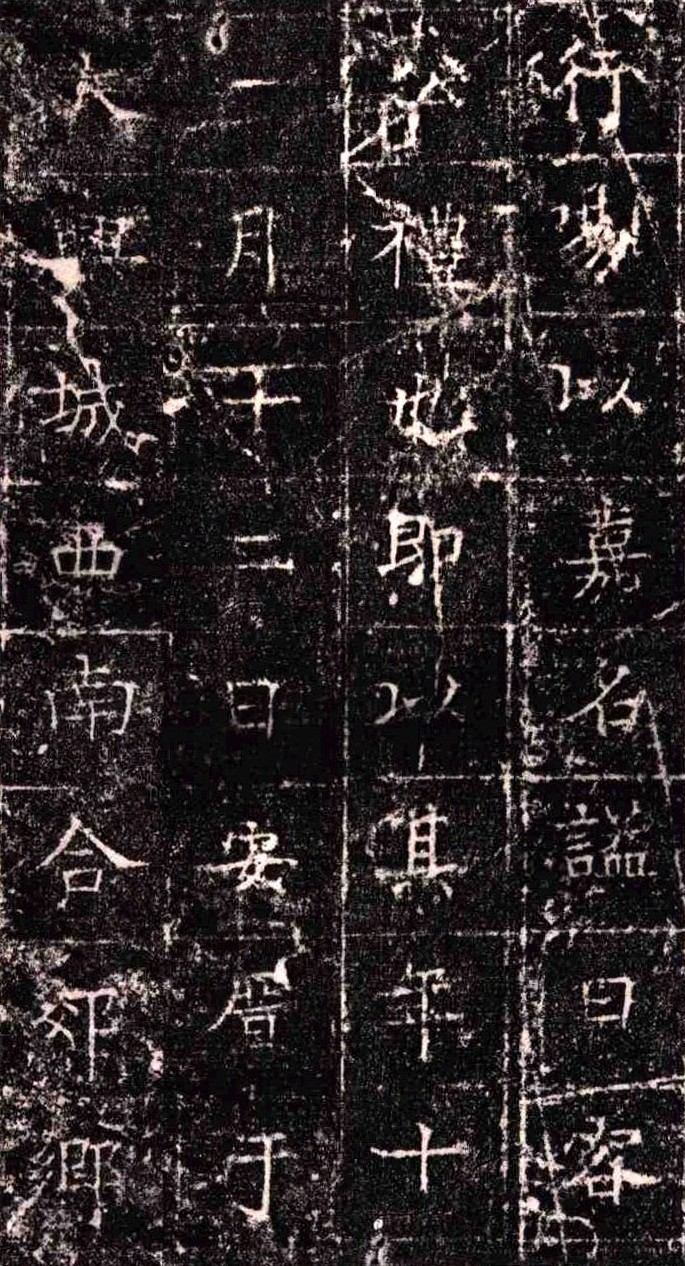 行以嘉名謚曰
禮也即以其年十
一月十二日安厝于
大興城西南合郊鄉